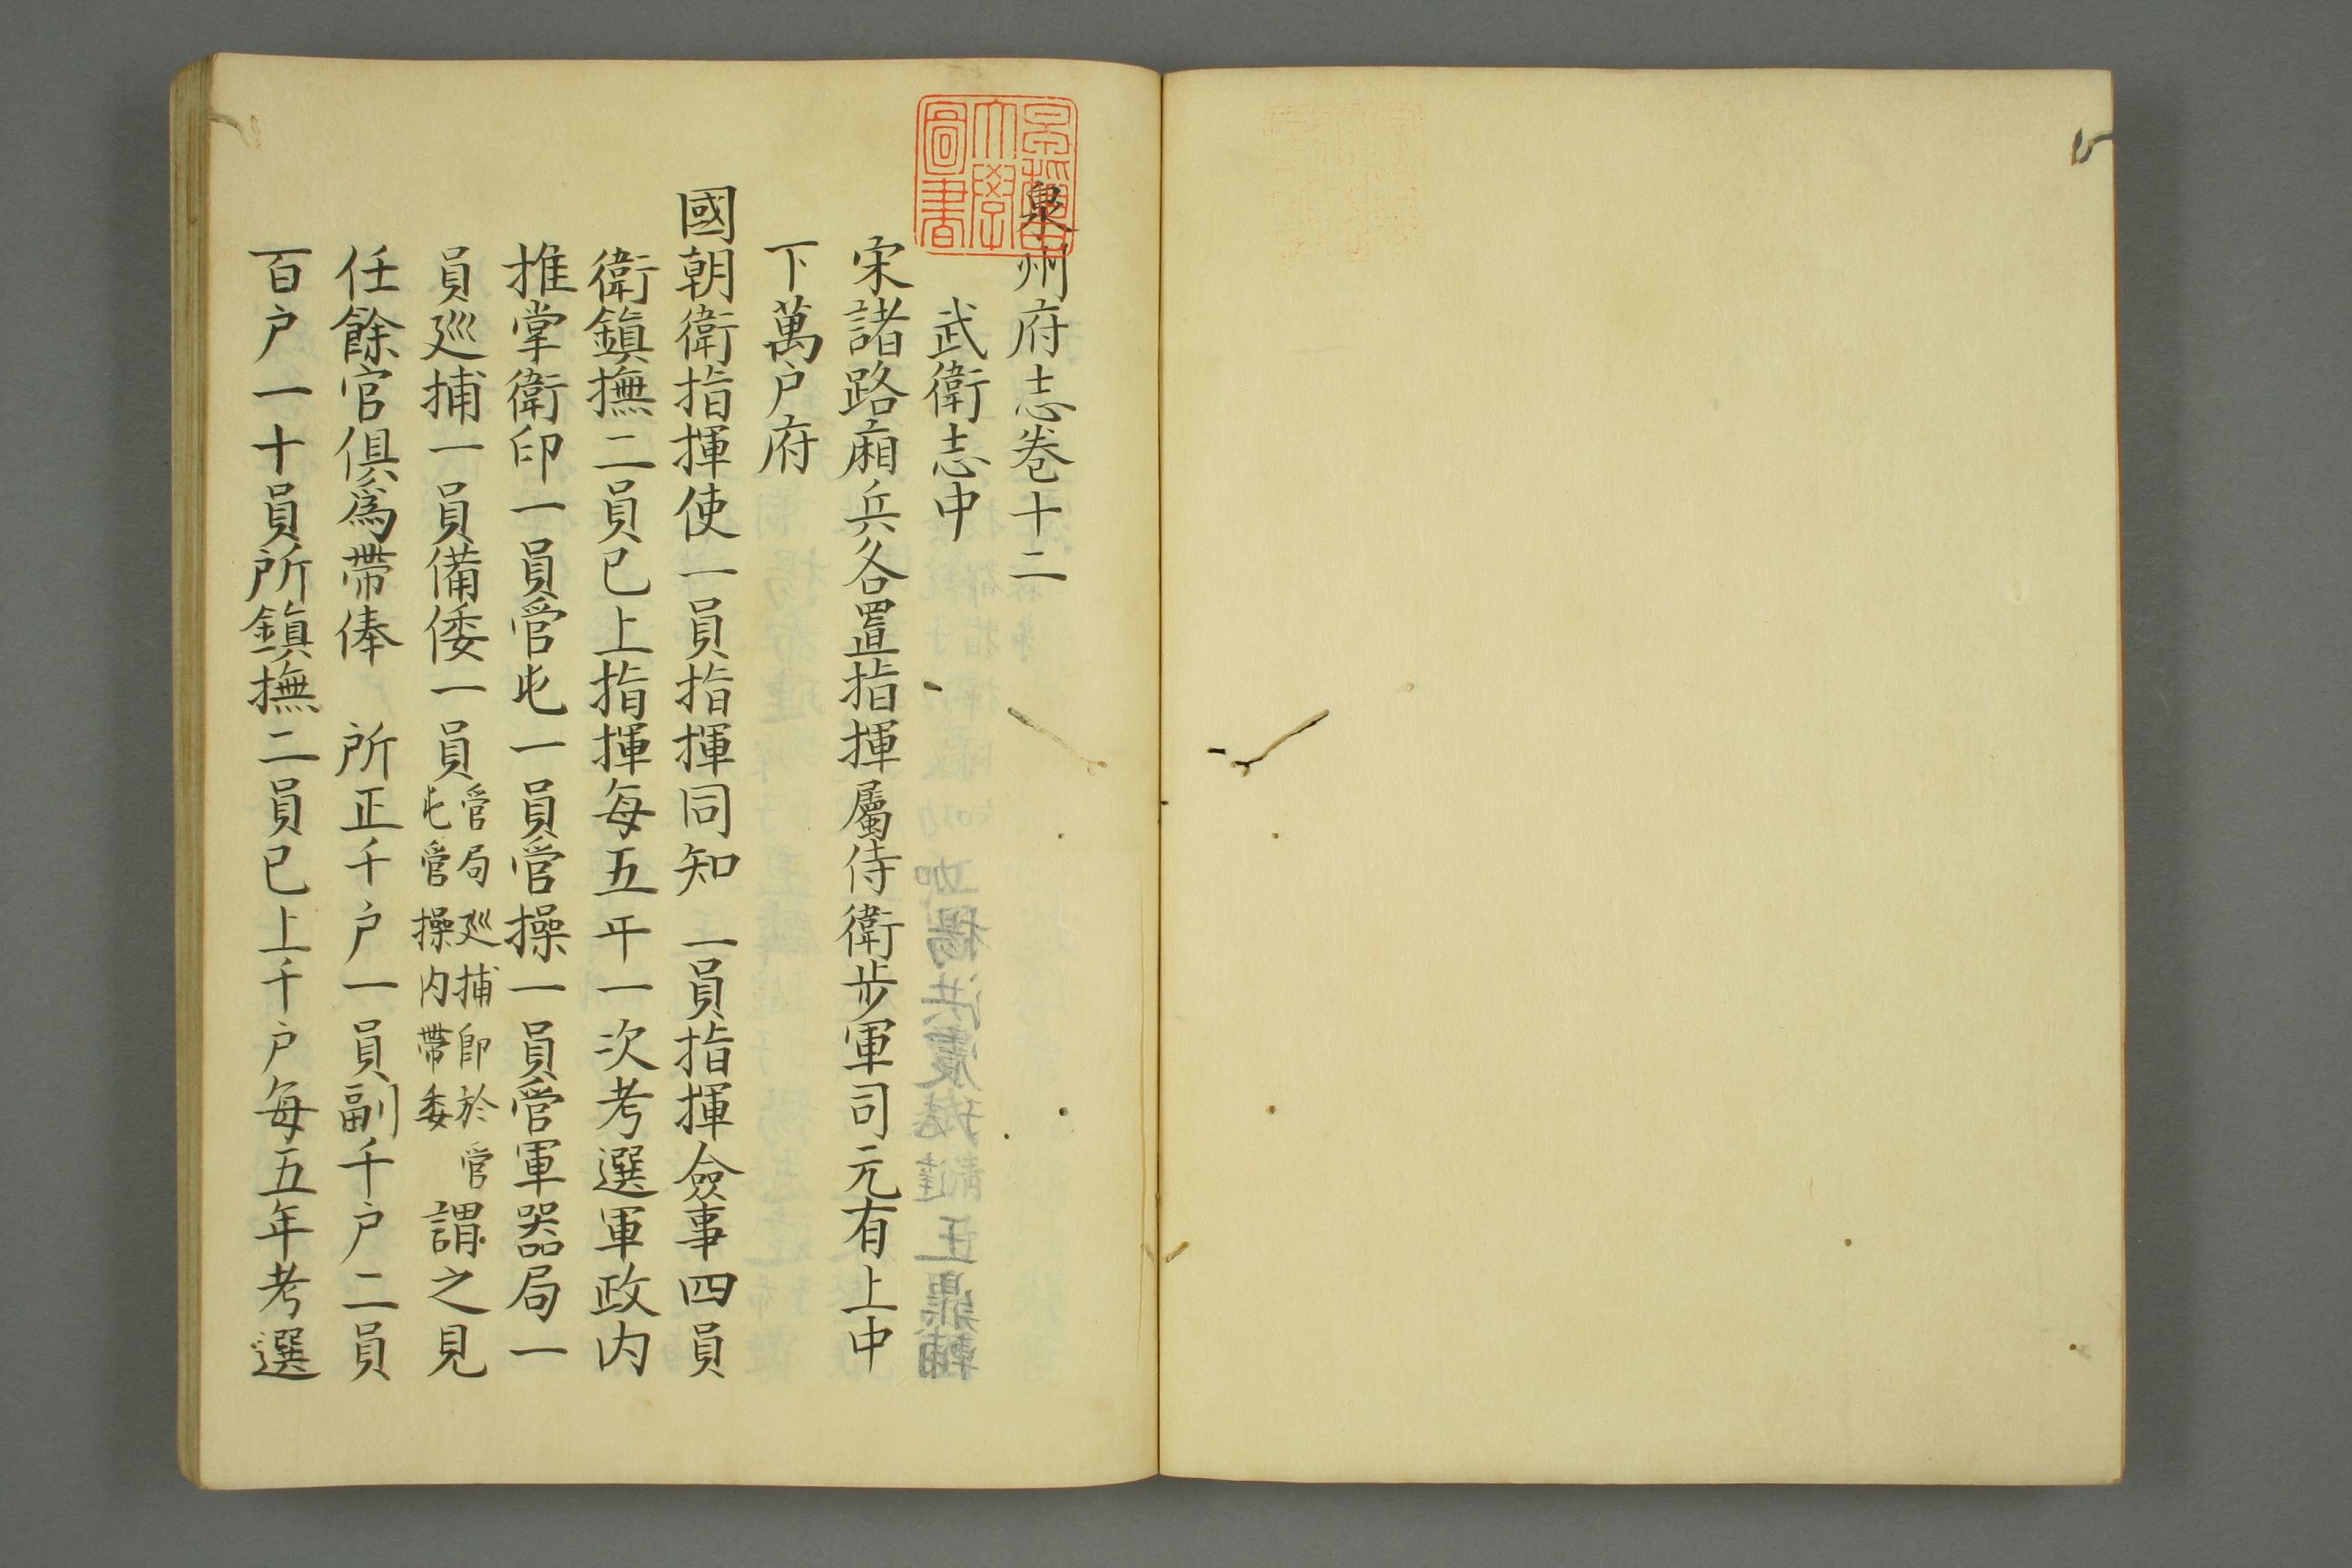 泉州府志卷十二
武衛志中
宋諸路廂兵各置指揮屬侍衛步軍司元有上中
下萬户府
國朝衛指揮使一員指揮同知 一員指揮僉事四員
衛鎮撫二員已上指揮每五年一次考選軍政内
推掌衛印一員管屯一員管操一員管軍器局一
員巡捕一員備倭一員管局巡捕即於管屯管操内帶委謂之見
任餘官俱爲帶俸 所正千户一員副千户二員
百户一十員所鎮撫二員已上千户每五年考選
大學
圖書